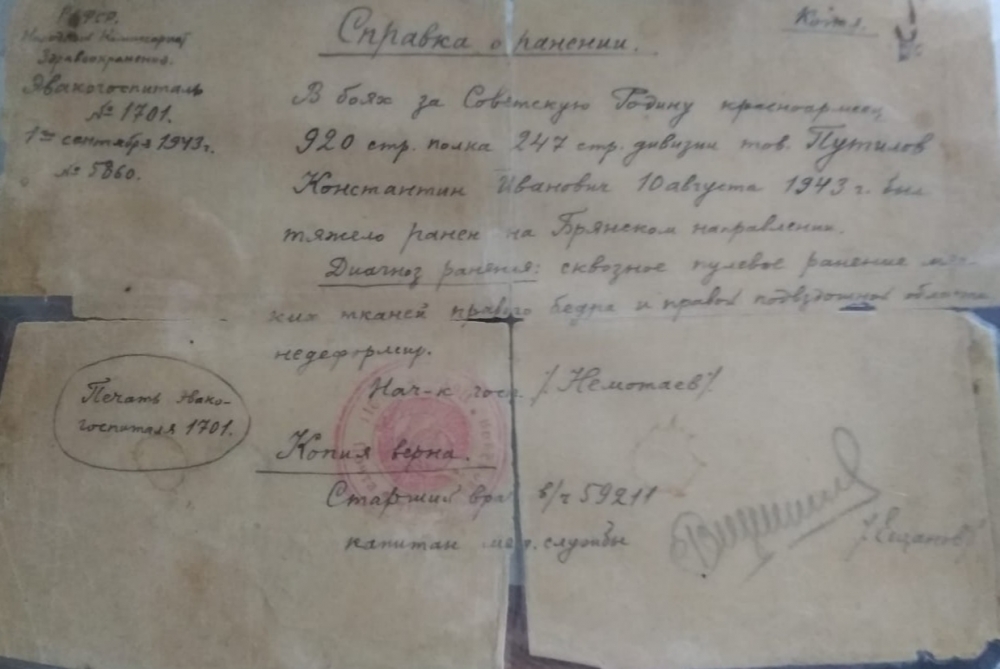 РСФСР.
Народный Комиссариат
Здравоохранения.
Эвакогоспиталь
№ 1701.
1го сентября 1943 г.
№ 5860.
Копия.
Справка о ранении.
В боях за Советскую Родину красноармеец
920 стр. полка 247 стр. дивизии тов. Путилов
Константин Иванович 10 августа 1943 г. был
тяжело ранен на Брянском направлении.
Диагноз ранения: сквозное пулевое ранение мяг-
ких тканей правого бедра и правой подвздошной области
недеформир.
Нач-к госп. /Немотаев/.
Печать эвако-
госпиталя 1701.
Копия верна.
Старший врач в/ч 59211
капитан мед. службы